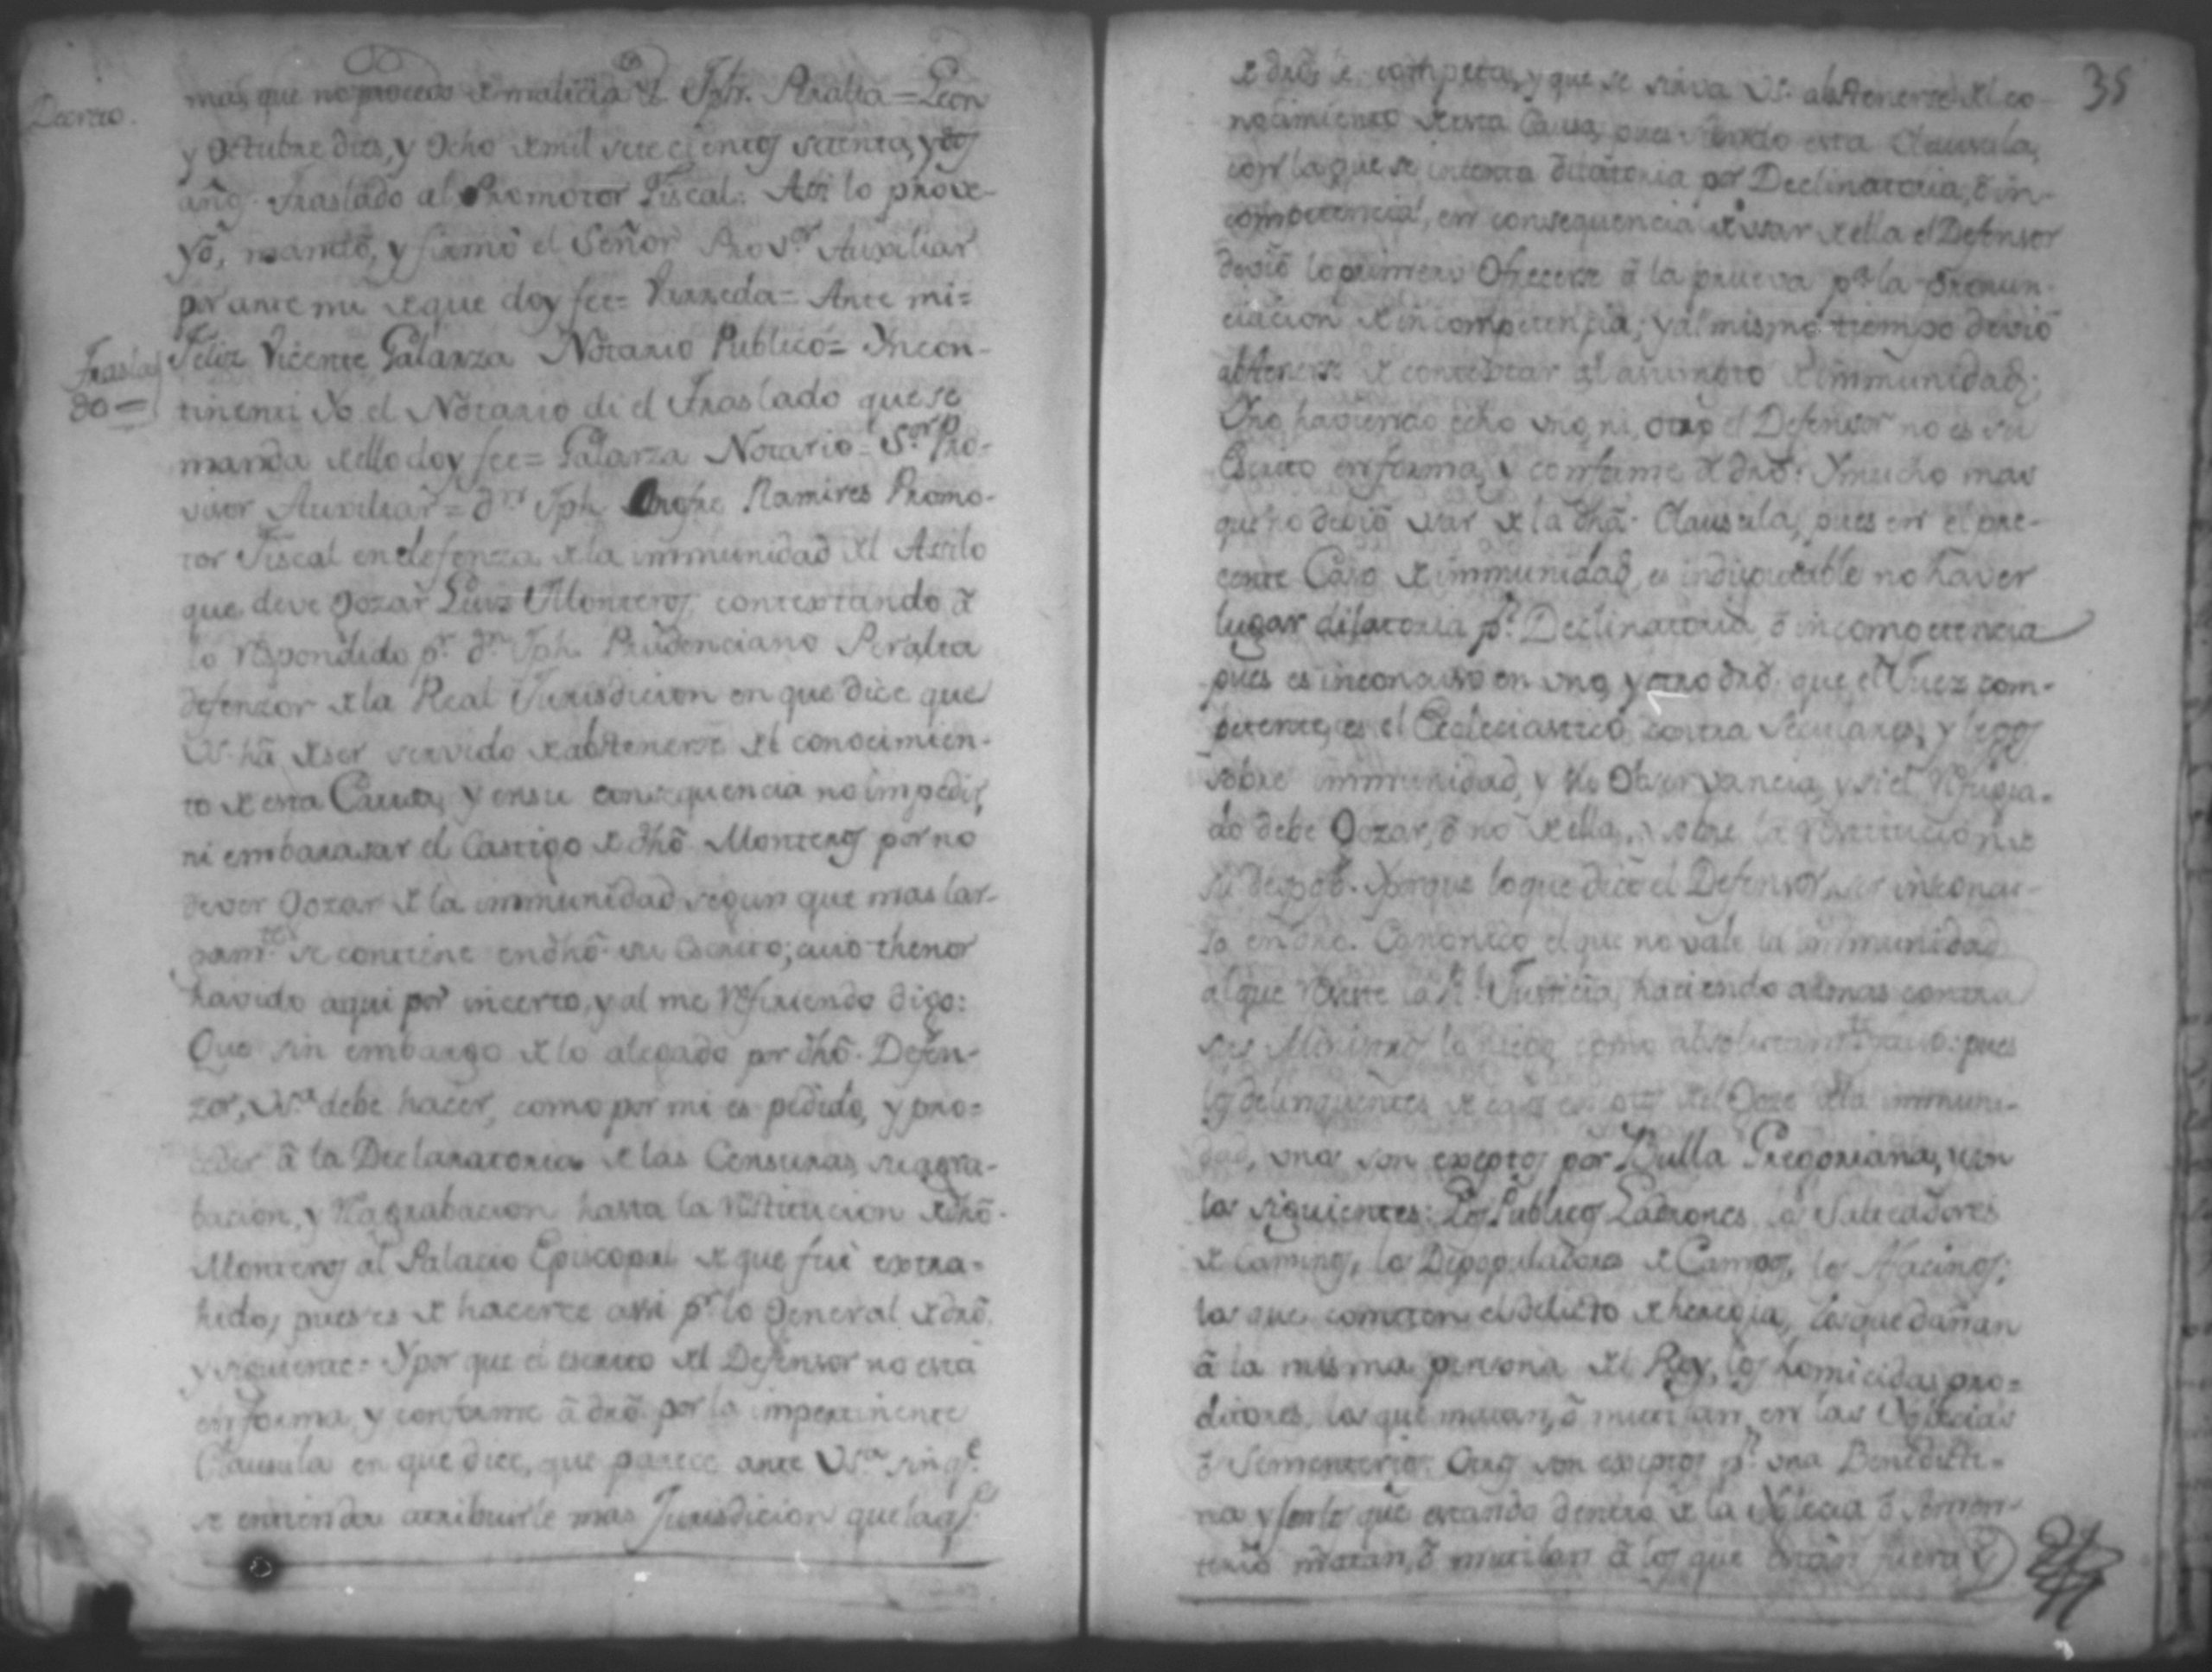 Decreto.
mas, que no procedo de malicia &. Jph. Peralta = Leon
y Octubre dies, y Ocho de mil sete cientos setenta, y dos
años. Traslado al Promotor Fiscal: Assi lo prove-
yó, mandó, y firmó el Señor Provr. Auxiliar
por ante mi de que doy fee = Herreda = Ante mi =
Trasla
do =
Felix Vicente Galarza Notario Publico = Yncon-
tinenti Yo el Notario di el Traslado que se
manda de ello doy fee = Galarza Notario = Sor. Pro-
visor Auxiliar = Dn. Jph Ramires Promo-
tor Fiscal en defenza de la immunidad del Assilo
que deve gozar Luiz Monteros, contextando á
lo respondido pr. Dn. Jph. Prudenciano Peralta
defenzor de la Real Jurisdicion en que dice que
VS. há de ser servido de abstenerse del conocimien-
to de esta Causa, y en su consequencia no impedir,
ni embarasar el Castigo de dhó. Monteros por no
dever gozar de la immunidad segun que mas lar-
gamte. se contiene en dhó. su Escrito; cuio thenor
havido aqui por incerto, y al me refiriendo digo:
Que sin embargo de lo alegado por dhó. Defen-
zor, VSa. debe hacer, como por mi es pedido, y pro-
ceder á la Declaratoria de las Censuras, reagra-
bacion, y reagrabacion hasta la restitucion de dhó.
Monteros al Palacio Episcopal de que fue extra-
hido, pues es de hacerce assi pr. lo general de dró.
y siguiente = Y por que el escrito del Defensor no está
en forma, y conforme á dró. por la impertinente
Clausula en que dice, que parece ante VSa. sin qe.
se entienda atribuirle mas Jurisdicion que la qe.
35
de dró. le competa, y que se sirva VS. abstenerse del co-
nocimiento de esta Causa, pues siendo esta Clausula,
con la que se intenta dilatoria por Declinatoria, ó in-
competencia, en consequencia de usar de ella el Defensor
devió lo primero Ofrecerse á la prueva pa. la
de incompetencia; y al mismo tiempo devió
abstenerse de contextar al asumpto de immunidad;
Y no haviendo echo uno, ni otro el Defensor no es su
Escrito en forma, y conforme á dró: Y mucho mas
que no devió usar de la dhá. Clausula, pues en el pre-
cente Caso de immunidad, es indisputable no haver
lugar dilatoria pr. Declinatoria, ó incompetencia
pues es inconcuso en uno, y otro dró. que el Juez com-
petente, es el Ecleciastico contra Seculares, y legos
sobre immunidad, y su Observancia, y si el refugia-
do debe gozar, ó no de ella, y sobre la restitucion de
su despojo. Y porque lo que dice el Defensor, ser inconcu-
so en dró. Canonico el que no vale la immunidad
al que resiste la Rl. Justicia, haciendo armas contra
sus Ministros, lo niego como absolutamte. falso: pues
los delinquentes de la immuni-
dad, unos son exeptos por Bulla Gregoriana, y son
los siguientes: Los Publicos Ladrones, los Salteadores
de Caminos, los Depopuladores de Campos, los Asacinos;
los que cometen el delicto de heregia, los que dañan
á la misma persona del Rey, los homicidas pro-
ditores, los que matan, ó mutilan en las Yglecias
ó Sementerios. Otros son exeptos pr. una Benedicti-
na y son los que estando dentro de la Yglecia ó Semen-
terio matan, ó mutilan á los que están fuera